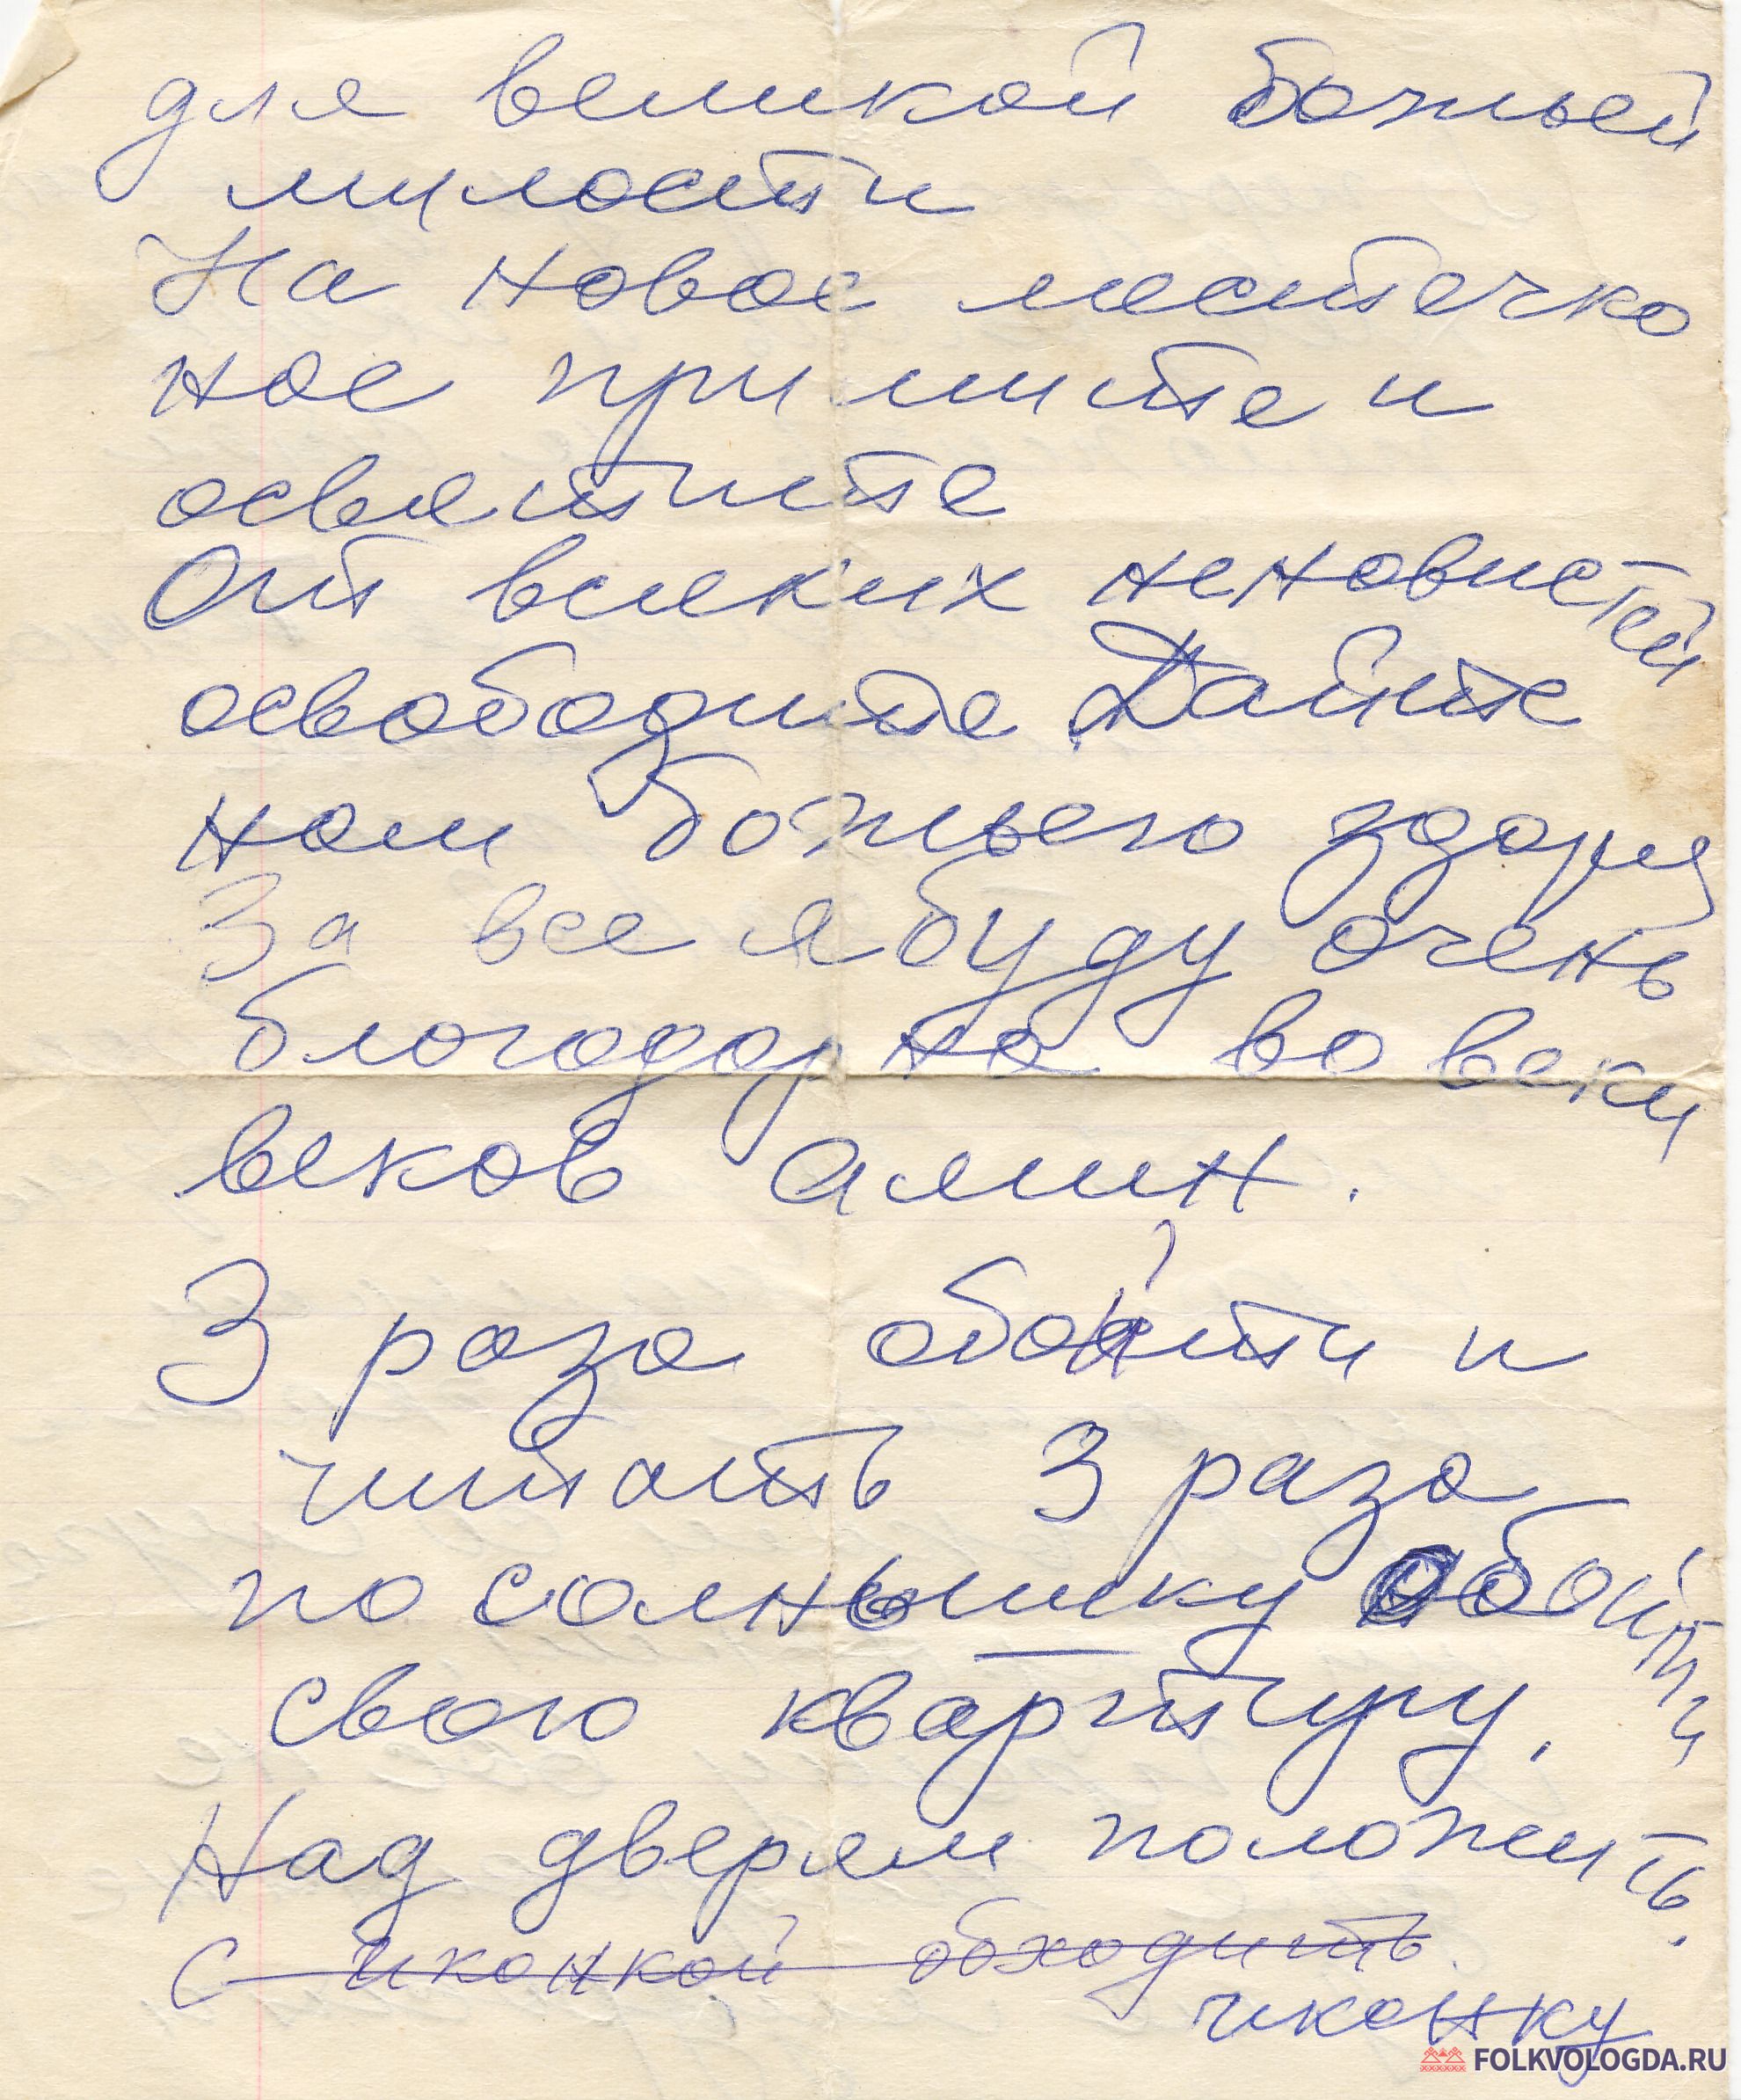 для великой божьей
милости
На новое местечко
нос примите и
осветите
От всяких неновистей
освободите Дайте
ном божьего здоря
За все я буду очень
блогодорно во веки
веков аминь.
3 разо обойти и
читать 3 разо
по солнышку обойти
свою квартиру.
Над дверям положить.
с иконкой обходить.
иконку
FOLKVOLOGDA.RU